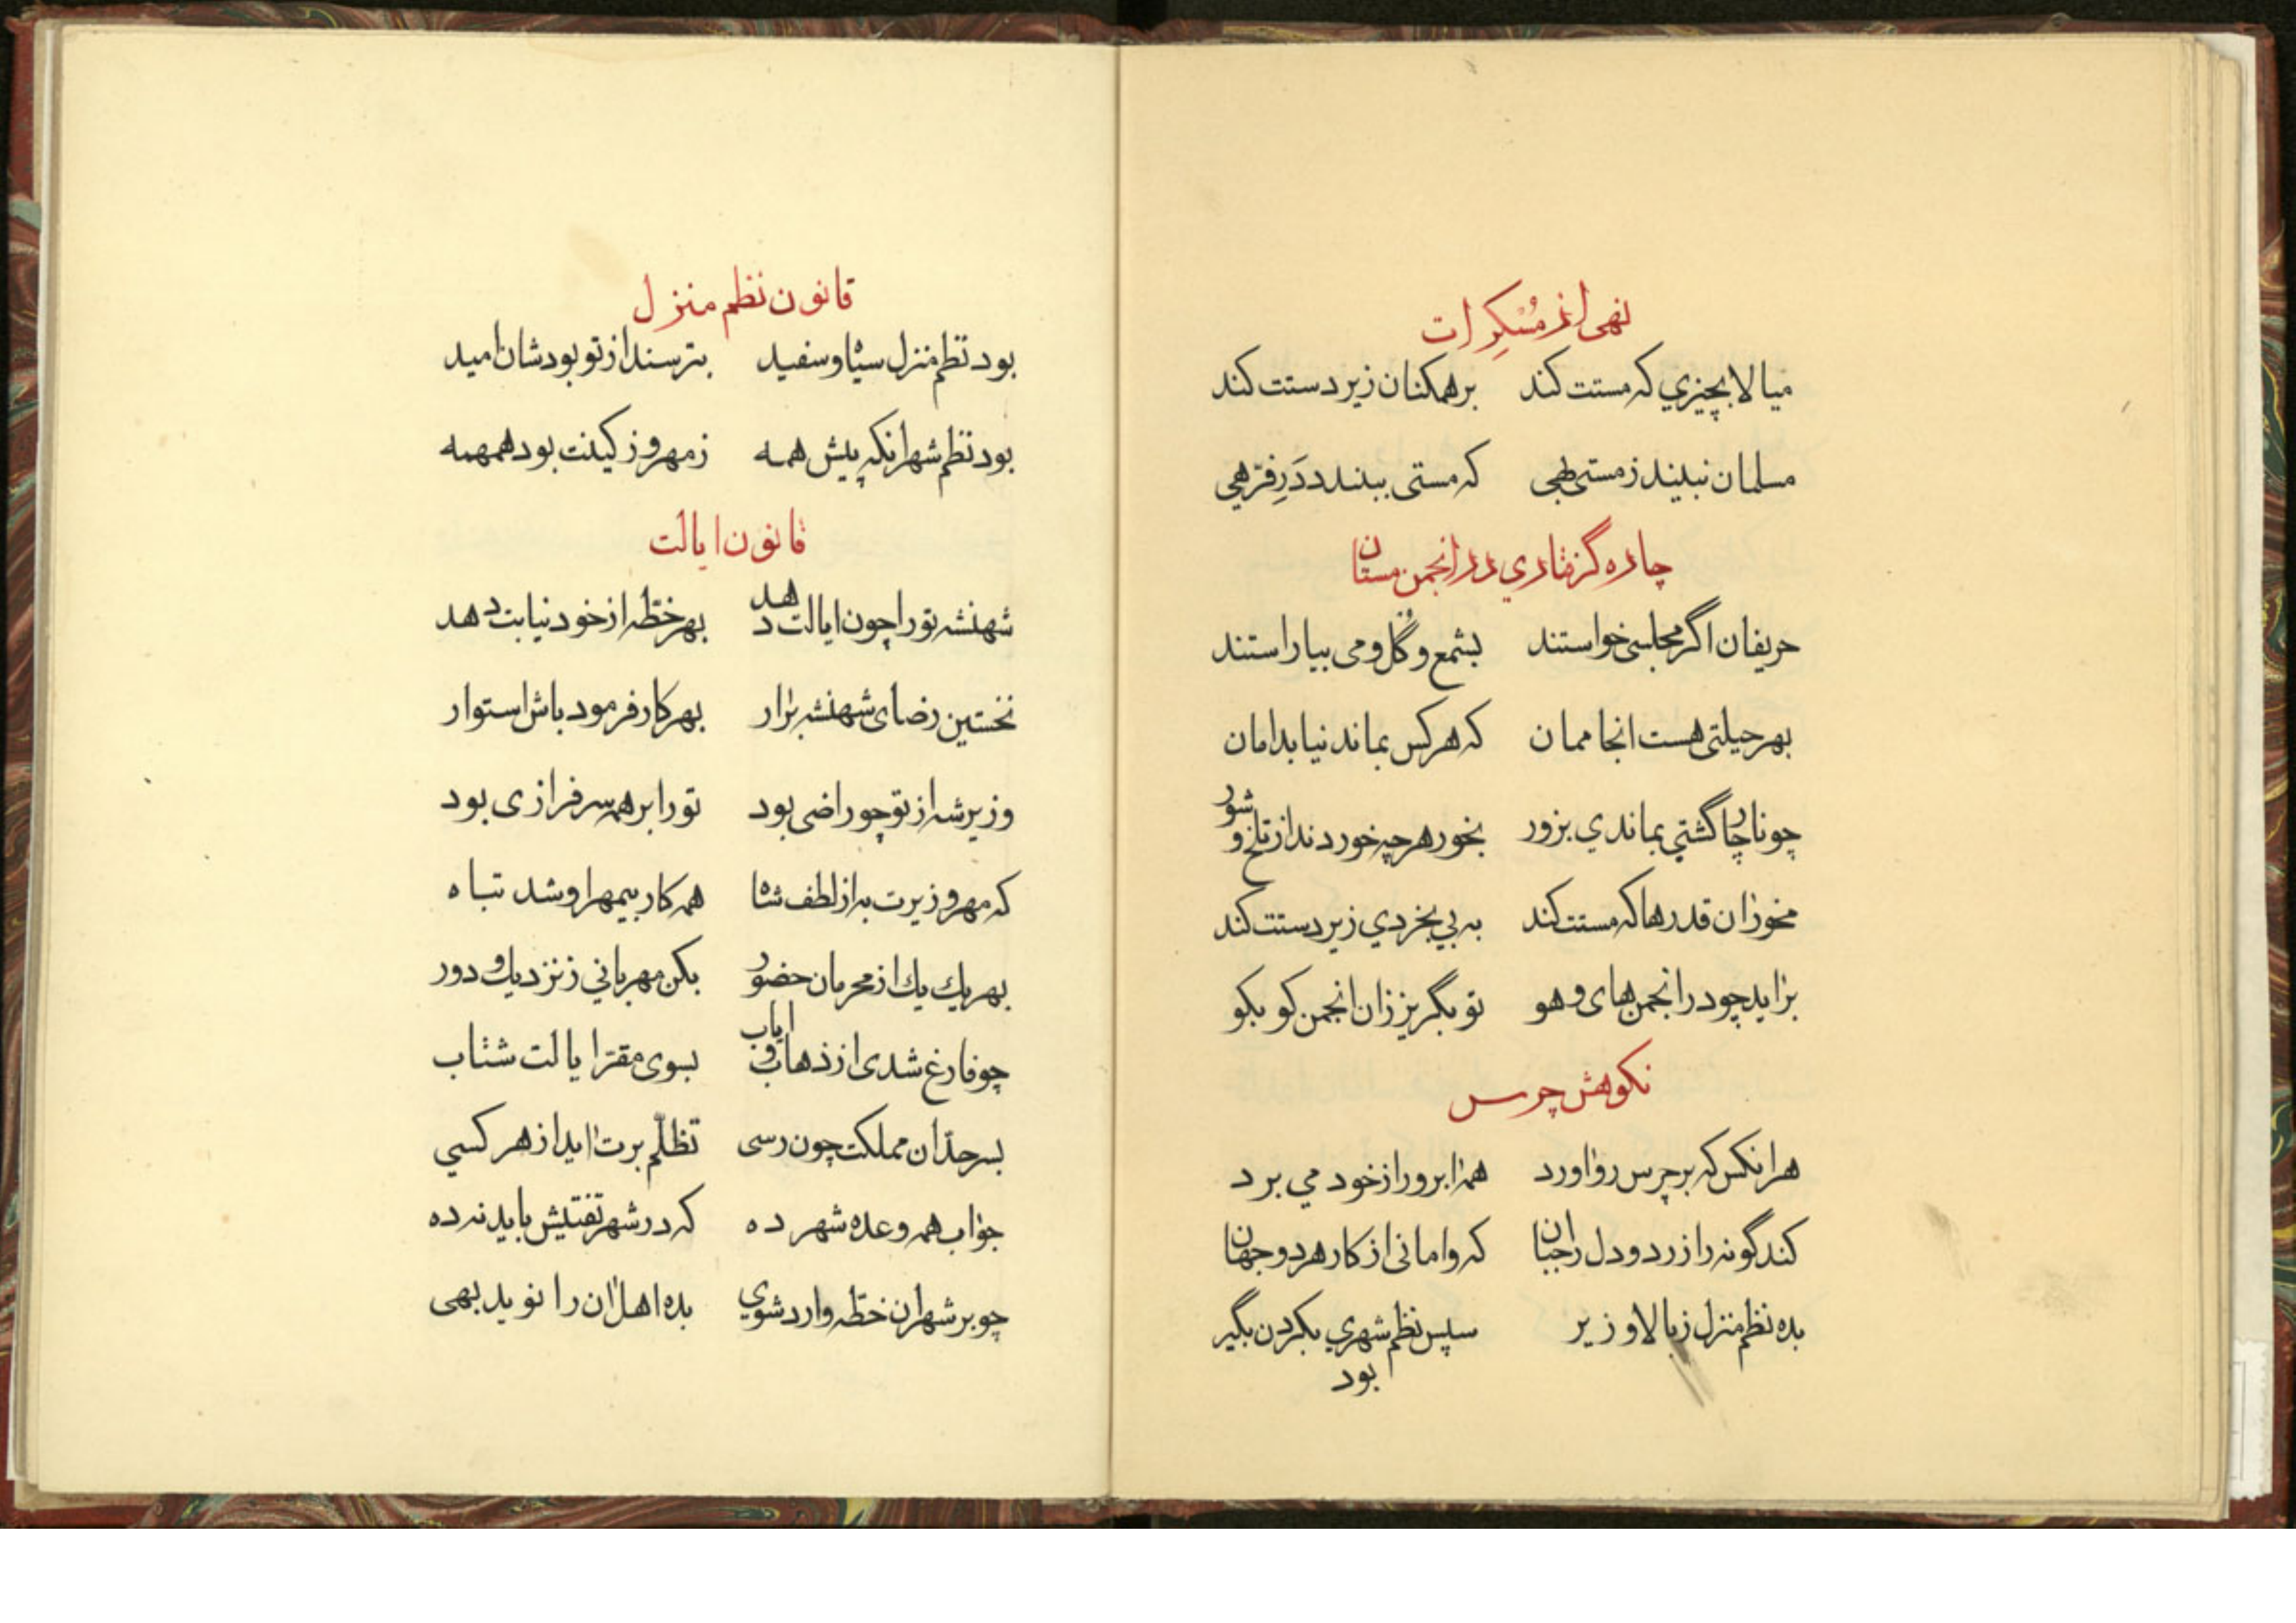 نهی از مُسْکِرات
میالا بچیزي که مستت کند برهمکنان زیردستت کند
مسلمان نبیند زمستی بهی که مستی ببندد دَرِ فرّهي
چاره گرفتاري در انجمن مستان
حریفان اگر مجلسی خواستند بشمع و گُل و می بیاراستند
بهر حیلتی هست انجا ممان که هرکس بماند نیابد امان
چو ناچار گشتي بماندي بزور بخور هرچه خوردند از تلخ و شور
مخور ان قدرها که مستت کند به بي بخردي زیردستت کند
براید چو در انجمن های و هو تو بگریز زان انجمن کو بکو
نکوهش چرس
هرانکس که بر چرس رو اورد همه ابرو از خود مي برد
کند گونه را زرد و دل را جبان که وامانی از کار هر دو جهان
بده نظم منزل ز بالا و زیر سپس نظم شهري بکردن بگیر
بود
قانون نظم منزل
بود نظم منزل سیاه و سفید بترسند از تو بودشان امید
بود نظم شهر انکه پیش همه ز مهر و ز کینت بود همهمه
قانون ایالت
شهنشه تو را چون ایالت دهد بهر خطّه از خود نیابت دهد
نخستین رضای شهنشه برار بهر کار فرمود باش استوار
وزیر شه از تو چو راضی بود تو را بر همه سرفرازی بود
که مهر وزیرت به از لطف شاه همه کار بیمهر او شد تباه
بهر یك یك از محرمان حضور بکن مهرباني ز نزدیك و دور
چو فارغ شدی از ذهاب و ایاب بسوی مقرّ ایالت شتاب
بسر حدّ ان مملکت چون رسی تظلّم برت اید از هر کسي
جواب همه وعده شهر ده که در شهر تفتیش باید نه ده
چو بر شهر ان خطّه وارد شوي بده اهل ان را نوید بهی